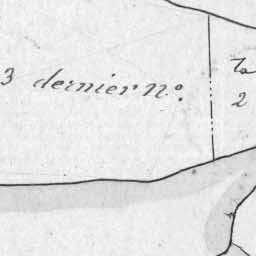 3 dernier No.
2